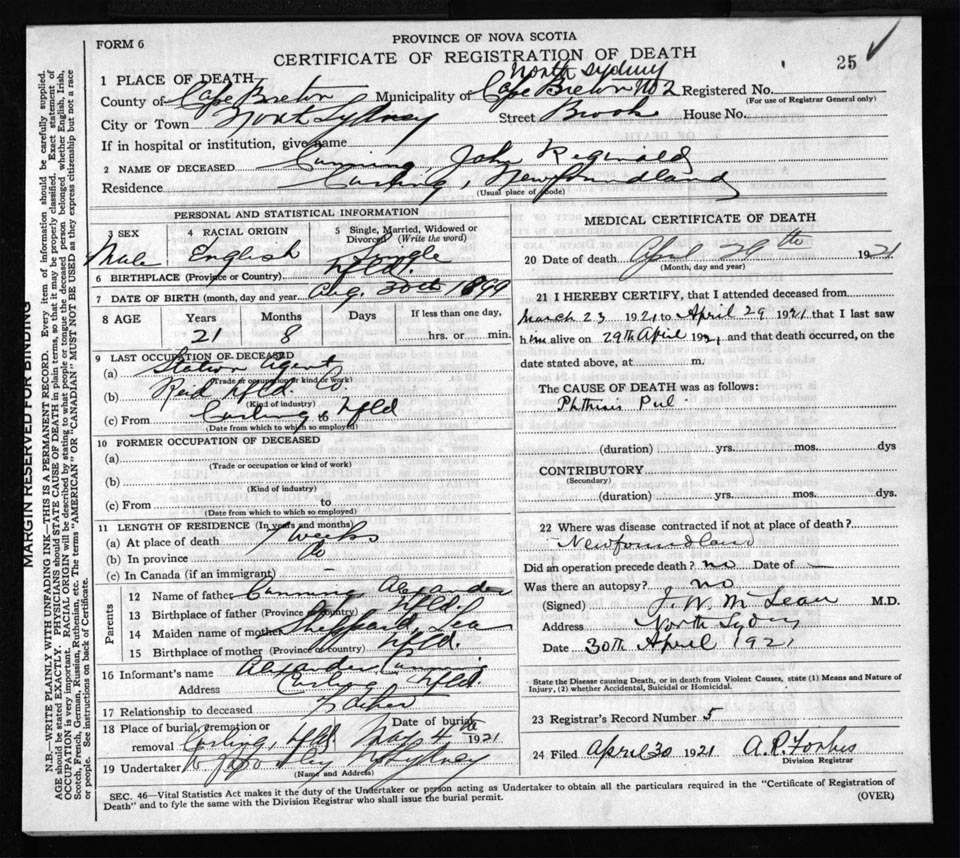 FORM 6
PROVINCE OF NOVA SCOTIA
CERTIFICATE OF REGISTRATION OF DEATH
25
1 PLACE OF DEATH
North Sydney
County of Cape Breton Municipality of Cape Breton No 2 Registered No.
(For use of Registrar General only)
City or Town North Sydney Street Brook House No.
If in hospital or institution, give name
2 NAME OF DECEASED Cunning John Reginald
Residence Curling, Newfoundland
(Usual place of abode)
PERSONAL AND STATISTICAL INFORMATION
3 SEX 4 RACIAL ORIGIN 5 Single, Married, Widowed or Divorced (Write the word)
Male English Single
6 BIRTHPLACE (Province or Country) Nfld.
7 DATE OF BIRTH (month, day and year Aug. 30th 1899
8 AGE Years Months Days If less than one day,
21 8 hrs. or min.
9 LAST OCCUPATION OF DECEASED
(a) Station Agent
(Trade or occupation or kind of work)
(b) Reid Nfld Co
(Kind of industry)
(c) From Curling to Nfld
(Date from which to which so employed)
10 FORMER OCCUPATION OF DECEASED
(a)
(Trade or occupation or kind of work)
(b)
(Kind of industry)
(c) From to
(Date from which to which so employed)
11 LENGTH OF RESIDENCE (In years and months)
(a) At place of death 7 weeks
(b) In province Do
(c) In Canada (if an immigrant) –
Parents
12 Name of father Cunning Alexander
13 Birthplace of father (Province or Country) Nfld.
14 Maiden name of mother Sheppard,
15 Birthplace of mother (Province or Country) Nfld.
16 Informant's name Alexander Cunning
Address Curling Nfld.
17 Relationship to deceased Father
18 Place of burial, cremation or removal Curling, Nfld Date of burial May 4th 1921
19 Undertaker N Sydney
(Name and Address)
MEDICAL CERTIFICATE OF DEATH
20 Date of death April 29th 1921
(Month, day and year)
21 I HEREBY CERTIFY, that I attended deceased from
March 23 1921 to April 29 1921 that I last saw
him alive on 29th April 1921, and that death occurred, on the
date stated above, at m.
The CAUSE OF DEATH was as follows:
Phthisis Pul.
(duration) yrs. mos. dys
CONTRIBUTORY
(Secondary)
(duration) yrs. mos. dys.
22 Where was disease contracted if not at place of death?
Newfoundland
Did an operation precede death? no Date of —
Was there an autopsy? no
(Signed) J. W. McLean M.D.
Address North Sydney
Date 30th April 1921
State the Disease causing Death, or in death from Violent Causes, state (1) Means and Nature of
Injury, (2) whether Accidental, Suicidal or Homicidal.
23 Registrar's Record Number 5
24 Filed April 30 1921 A. R. Forbes
Division Registrar
SEC. 46—Vital Statistics Act makes it the duty of the Undertaker or person acting as Undertaker to obtain all the particulars required in the "Certificate of Registration of
Death" and to fyle the same with the Division Registrar who shall issue the burial permit.
(OVER)
MARGIN RESERVED FOR BINDING
N.B.—WRITE PLAINLY WITH UNFADING INK—THIS IS A PERMANENT RECORD. Every item of information should be carefully supplied.
AGE should be stated EXACTLY. PHYSICIANS should STATE CAUSE OF DEATH in plain terms, so that it may be properly classified. Exact statement of
OCCUPATION is very important. RACIAL ORIGIN will be described by stating to what people or tongue the deceased person belonged, whether English, Irish,
Scotch, French, German, Russian, Ruthenian, etc. The terms "AMERICAN" OR "CANADIAN" MUST NOT BE USED as they express citizenship but not a race
or people. See instructions on back of Certificate.